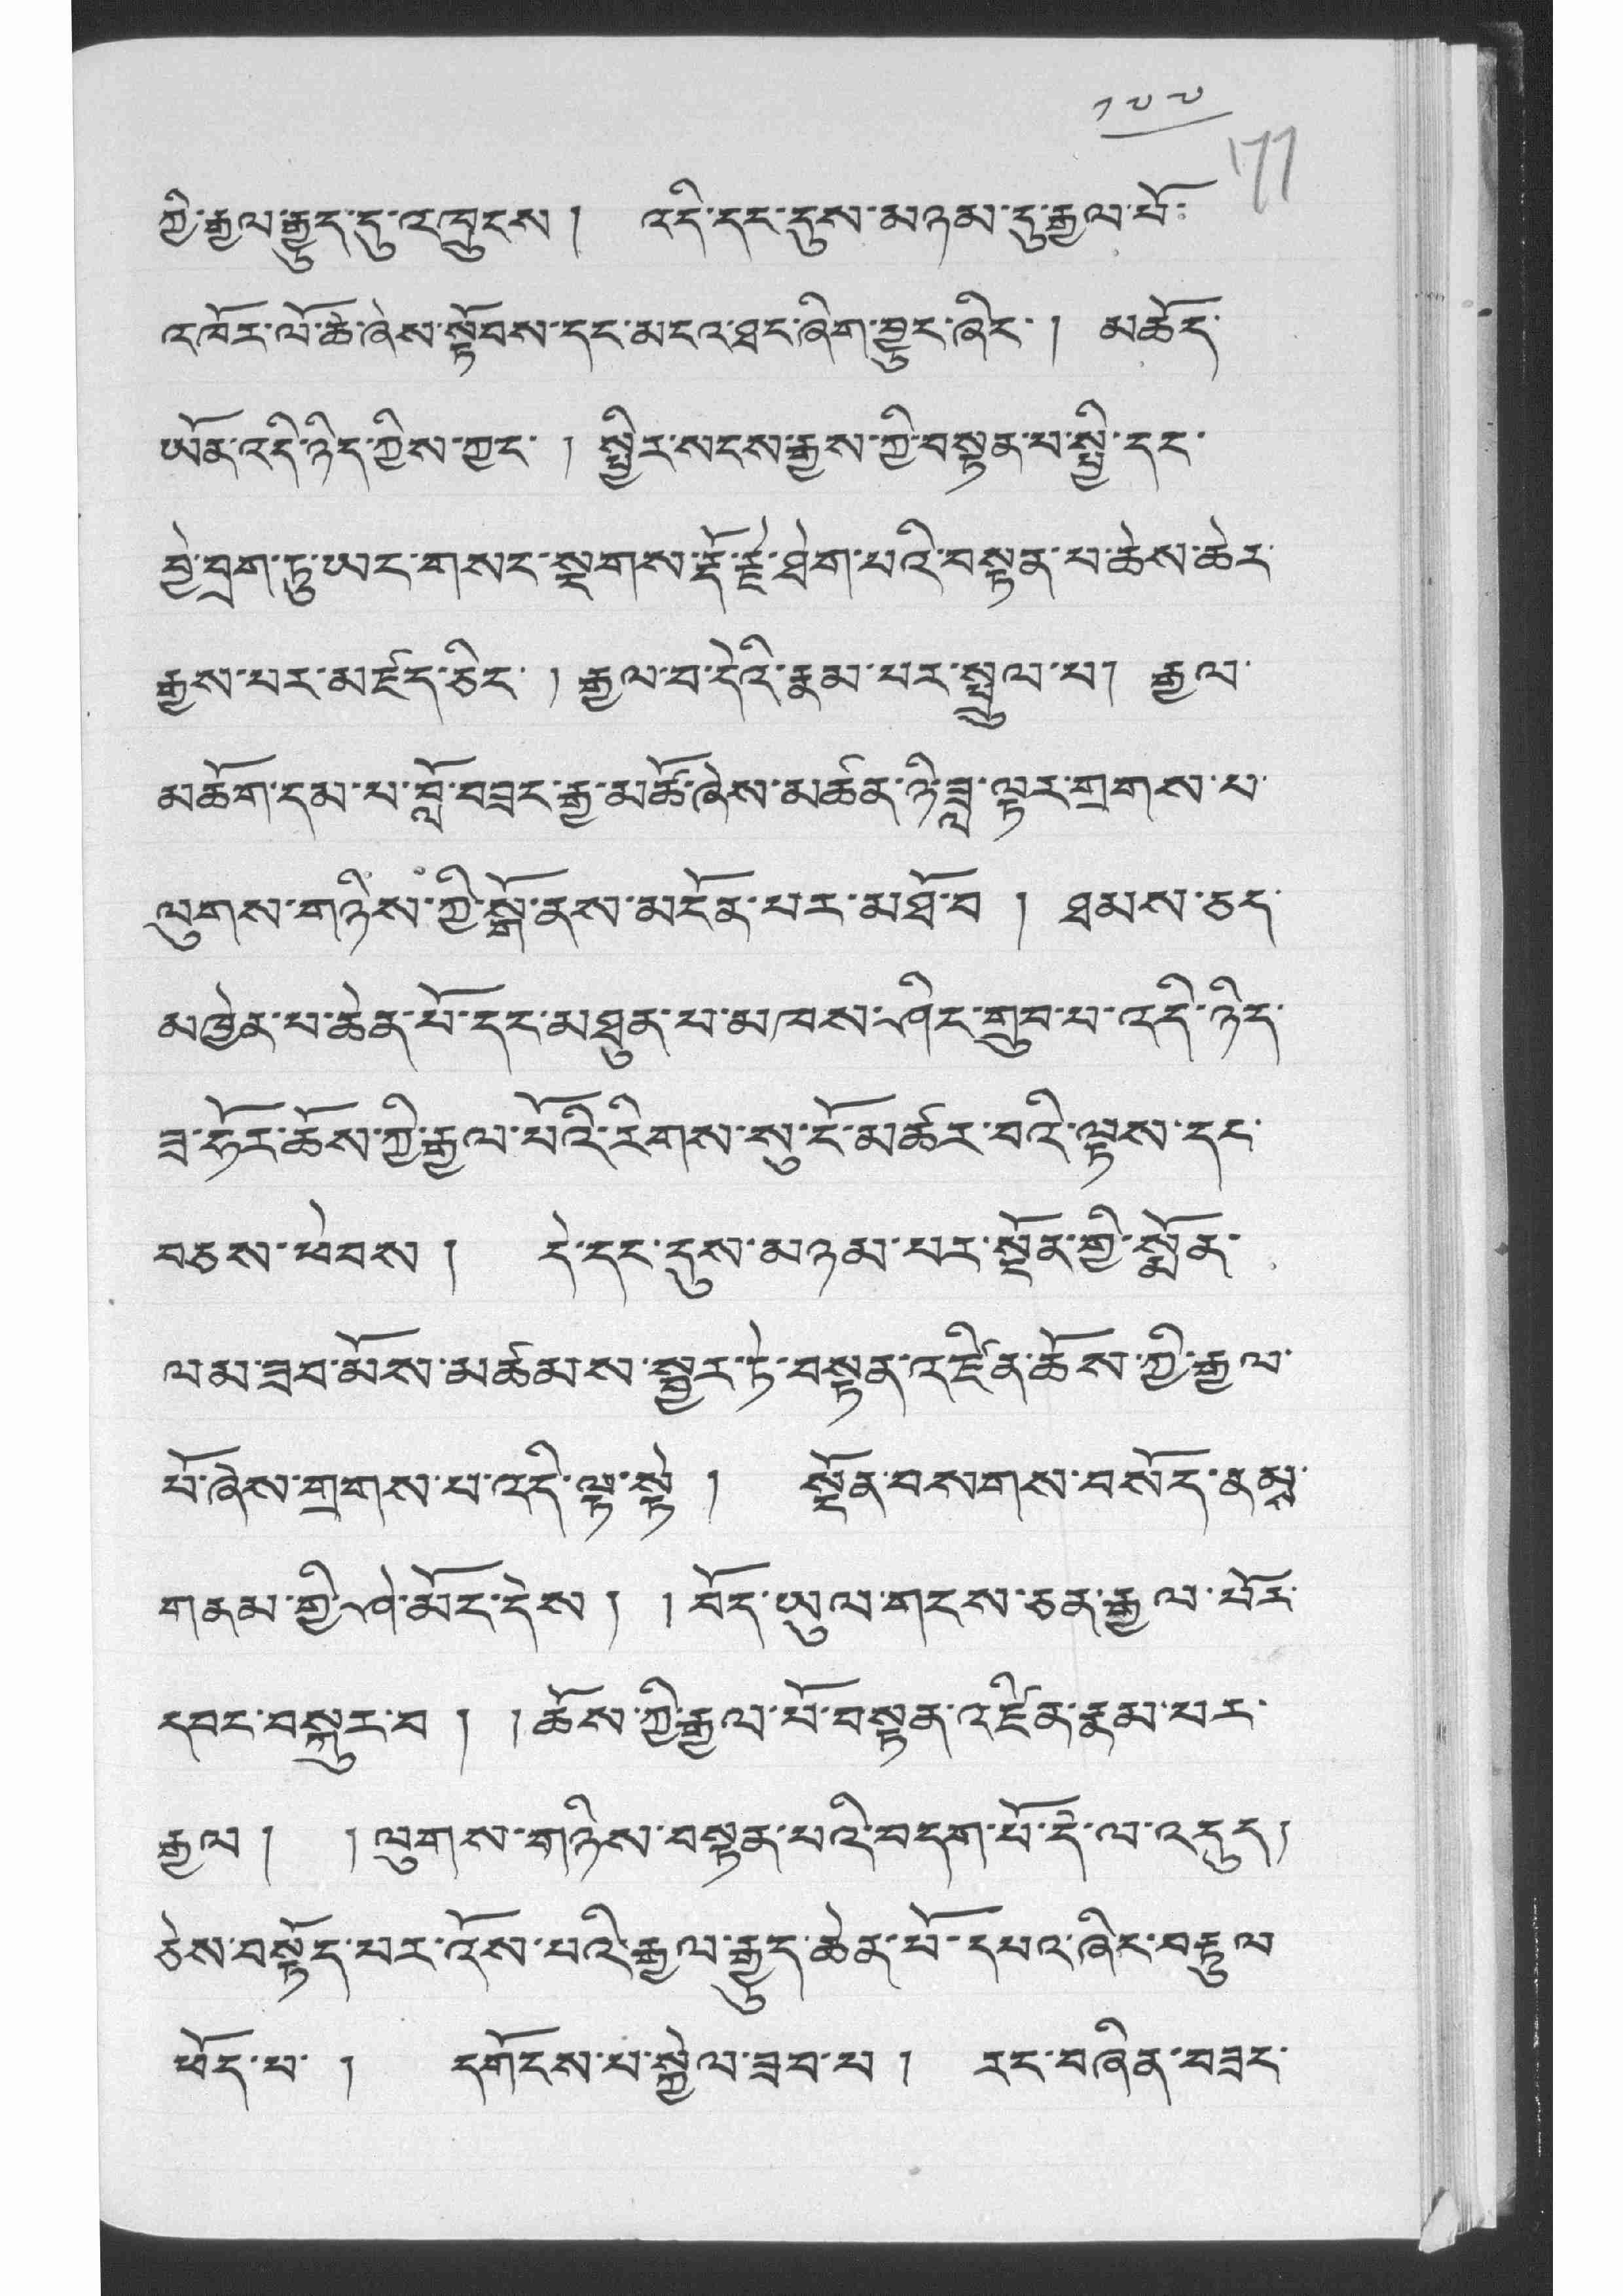 ༡༧༧
177
ཀྱི་རྒྱལ་རྒྱུད་དུ་འཁྲུངས། འདི་དང་དུས་མཉམ་དུ་རྒྱལ་པོ་
འཁོར་ལོ་ཆེ་ཞེས་སྟོབས་དང་མངའ་ཐང་ཞིག་བྱུང་ཞིང་། མཆོད་
ཡོན་འདི་ཉིད་ཀྱིས་ཀྱང་། སྤྱིར་སངས་རྒྱས་ཀྱི་བསྟན་པ་སྤྱི་དང་
བྱེ་བྲག་ཏུ་ཡང་གསང་སྔགས་རྡོ་རྗེ་ཐེག་པའི་བསྟན་པ་ཆེས་ཆེར་
རྒྱས་པར་མཛད་ཅིང་། རྒྱལ་བ་དེའི་རྣམ་པར་སྤྲུལ་པ། རྒྱལ་
མཆོག་དམ་པ་བློ་བཟང་རྒྱ་མཚོ་ཞེས་མཚན་ཉི་ཟླ་ལྟར་གྲགས་པ་
ལུགས་གཉིས་ཀྱི་སྒོ་ནས་མངོན་པར་མཐོ་བ། ཐམས་ཅད་
མཁྱེན་པ་ཆེན་པོ་དང་མཐུན་པ་མཁས་ཤིང་གྲུབ་པ་འདི་ཉིད་
ཟ་ཧོར་ཆོས་ཀྱི་རྒྱལ་པོའི་རིགས་སུ་ངོ་མཚར་བའི་ལྟས་དང་
བཅས་ཕེབས། དེ་དང་དུས་མཉམ་པར་སྔོན་གྱི་སྨོན་
ལམ་ཟབ་མོས་མཚམས་སྦྱར་ཏེ་བསྟན་འཛིན་ཆོས་ཀྱི་རྒྱལ་
པོ་ཞེས་གྲགས་པ་འདི་ལྟ་སྟེ། སྔོན་བསགས་བསོད་ནམྶ་
གནམ་གྱི་ཤེ་མོང་དེས། །བོད་ཡུལ་གངས་ཅན་རྒྱལ་པོར་
དབང་བསྐུར་བ། །ཆོས་ཀྱི་རྒྱལ་པོ་བསྟན་འཛིན་རྣམ་པར་
རྒྱལ། །ལུགས་གཉིས་བསྟན་པའི་བདག་པོ་དེ་ལ་འདུད།
ཅེས་བསྟོད་པར་འོས་པའི་རྒྱལ་རྒྱུད་ཆེན་པོ་དཔའ་ཞིང་བརྟུལ་
ཕོད་པ་། དགོངས་པ་སྐྱེལ་ཟབ་པ། རང་བཞིན་བཟང་